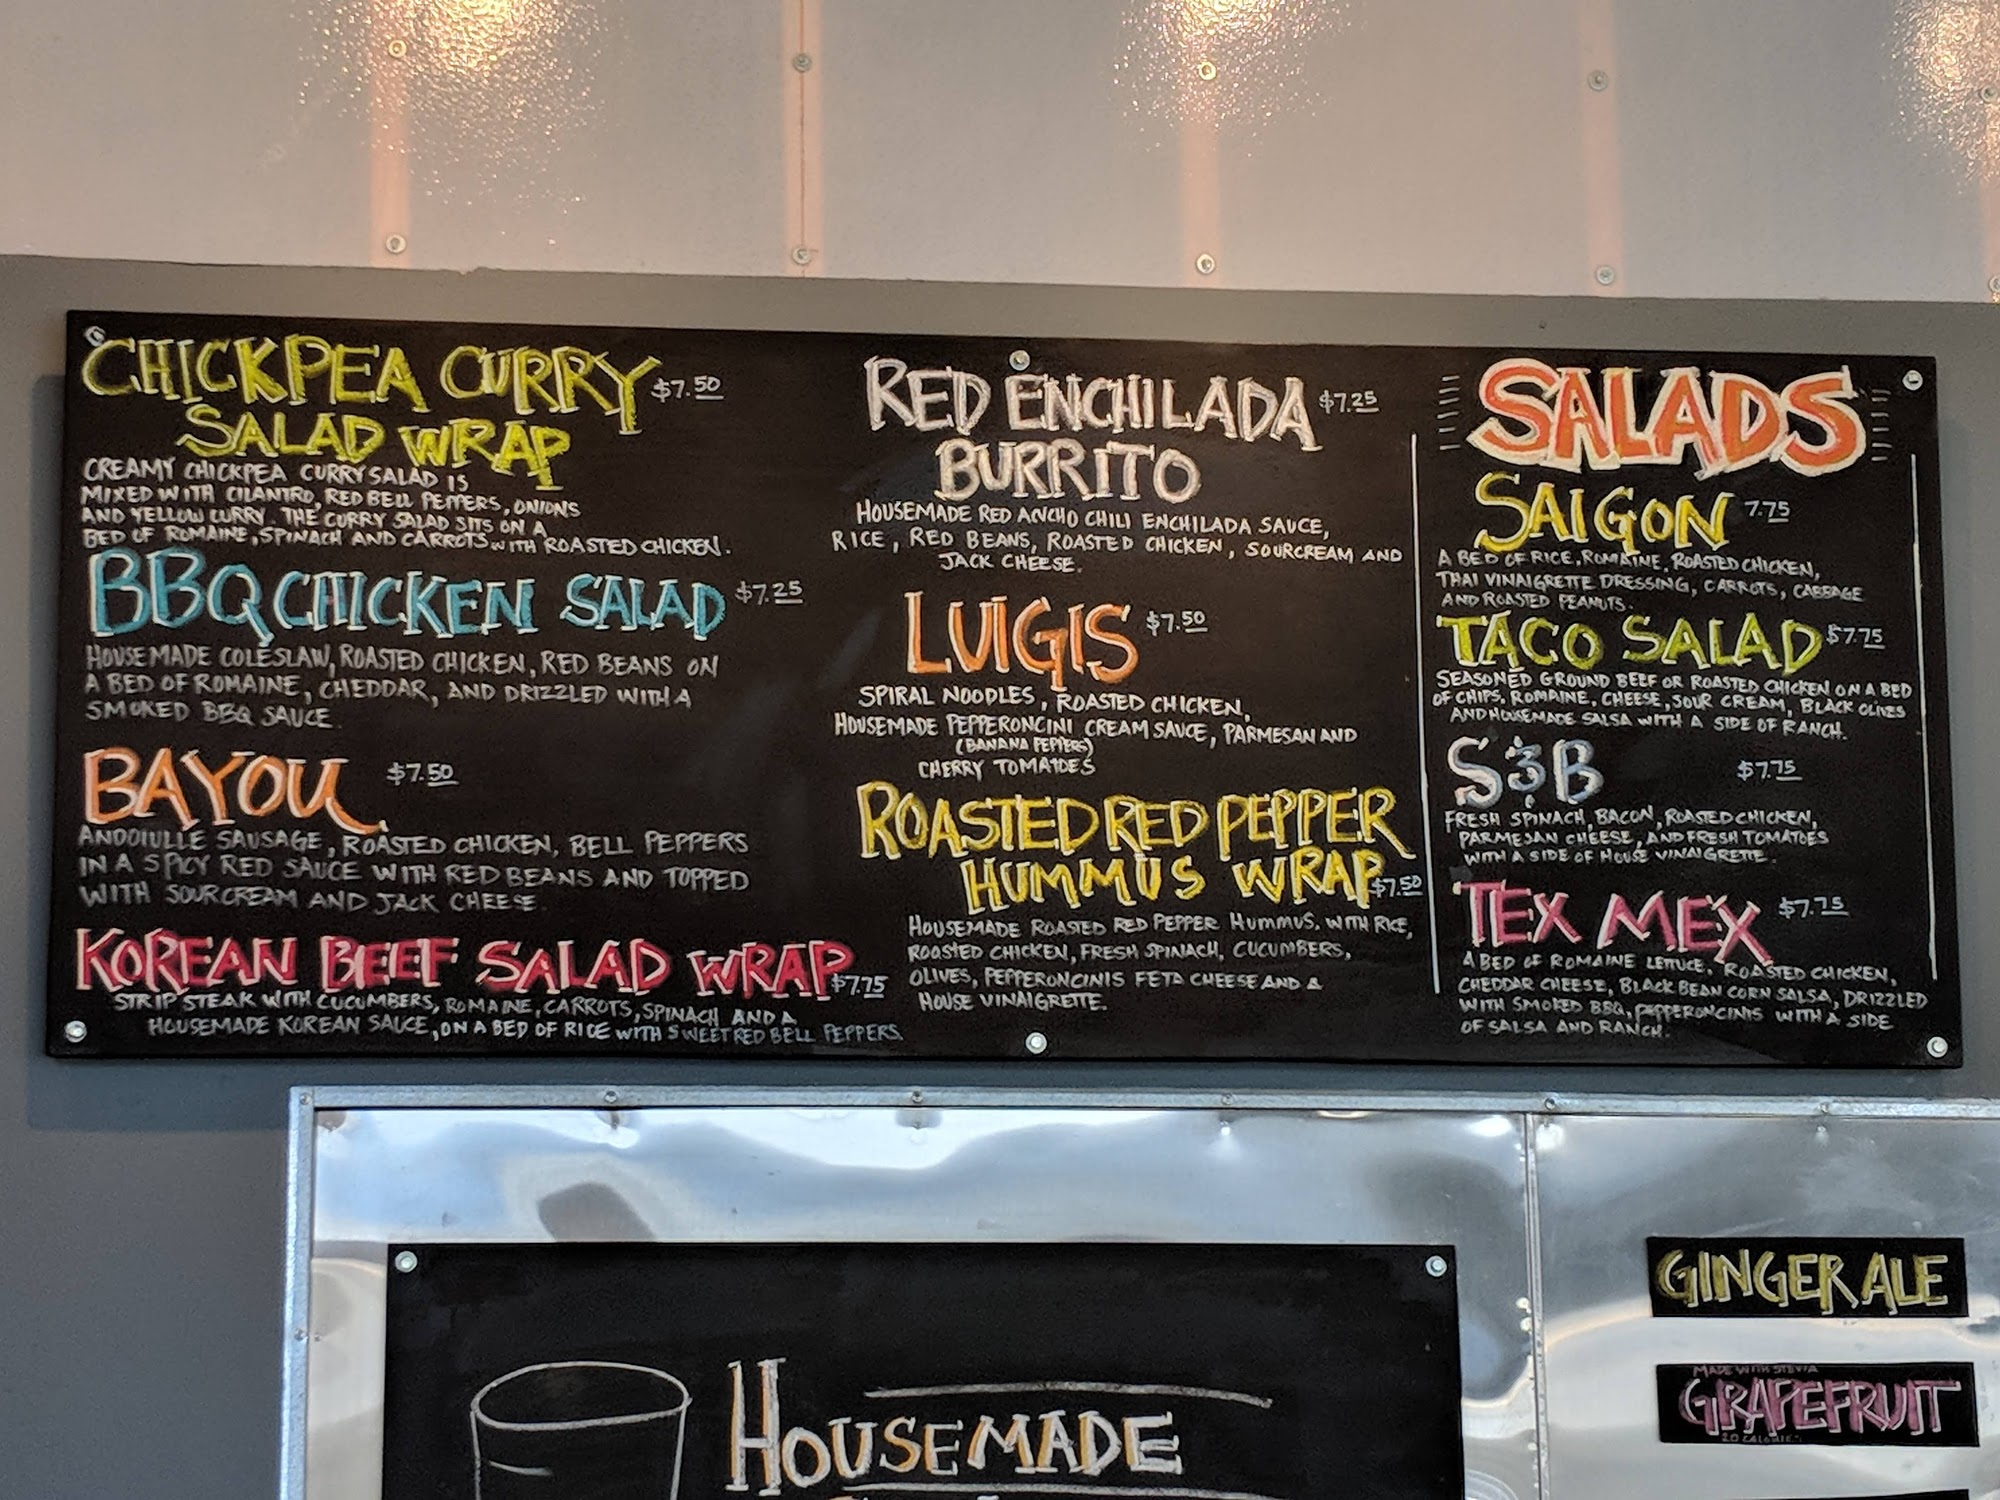 CHICKPEA CURRY $7.50
SALAD WRAP
CREAMY CHICKPEA CURRY SALAD IS
MIXED WITH CILANTRO, RED BELL PEPPERS, ONIONS
AND YELLOW CURRY. THE CURRY SALAD SITS ON A
BED OF ROMAINE, SPINACH AND CARROTS WITH ROASTED CHICKEN.
BBQ CHICKEN SALAD $7.25
HOUSEMADE COLESLAW, ROASTED CHICKEN, RED BEANS ON
A BED OF ROMAINE, CHEDDAR, AND DRIZZLED WITH A
SMOKED BBQ SAUCE.
BAYOU $7.50
ANDOIULLE SAUSAGE, ROASTED CHICKEN, BELL PEPPERS
IN A SPICY RED SAUCE WITH RED BEANS AND TOPPED
WITH SOURCREAM AND JACK CHEESE.
KOREAN BEEF SALAD WRAP $7.75
STRIP STEAK WITH CUCUMBERS, ROMAINE, CARROTS, SPINACH AND A
HOUSEMADE KOREAN SAUCE, ON A BED OF RICE WITH SWEET RED BELL PEPPERS.
RED ENCHILADA $7.25
BURRITO
HOUSEMADE RED ANCHO CHILI ENCHILADA SAUCE,
RICE, RED BEANS, ROASTED CHICKEN, SOURCREAM AND
JACK CHEESE.
LUIGIS $7.50
SPIRAL NOODLES, ROASTED CHICKEN,
HOUSEMADE PEPPERONCINI CREAM SAUCE, PARMESAN AND
(BANANA PEPPERS)
CHERRY TOMATOES
ROASTED RED PEPPER
HUMMUS WRAP $7.50
HOUSEMADE ROASTED RED PEPPER HUMMUS, WITH RICE,
ROASTED CHICKEN, FRESH SPINACH, CUCUMBERS,
OLIVES, PEPPERONCINIS FETA CHEESE AND A
HOUSE VINAIGRETTE.
SALADS
SAIGON 7.75
A BED OF RICE, ROMAINE, ROASTED CHICKEN,
THAI VINAIGRETTE DRESSING, CARROTS, CABBAGE
AND ROASTED PEANUTS.
TACO SALAD $7.75
SEASONED GROUND BEEF OR ROASTED CHICKEN ON A BED
OF CHIPS, ROMAINE, CHEESE, SOUR CREAM, BLACK OLIVES
AND HOUSEMADE SALSA WITH A SIDE OF RANCH.
S&B $7.75
FRESH SPINACH, BACON, ROASTED CHICKEN,
PARMESAN CHEESE, AND FRESH TOMATOES
WITH A SIDE OF HOUSE VINAIGRETTE.
TEX MEX $7.75
A BED OF ROMAINE LETTUCE, ROASTED CHICKEN,
CHEDDAR CHEESE, BLACK BEAN CORN SALSA, DRIZZLED
WITH SMOKED BBQ, PEPPERONCINIS WITH A SIDE
OF SALSA AND RANCH.
HOUSEMADE
GINGER ALE
MADE WITH STEVIA
GRAPEFRUIT
20 CALORIES